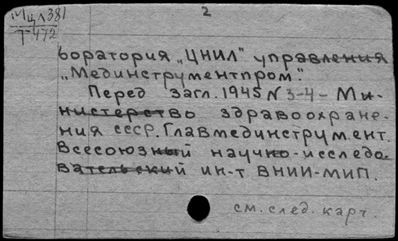 2
Мцл381
Т-472
боратория „ЦНИЛ" управления
„Мединструментпром".
Перед загл. 1945 N 3-4 - Ми-
нистерство здравоохране-
ния СССР. Главмединструмент.
Всесоюзный научно-исследо-
вательский ин-т ВНИИ-МИП.
см. след. карт.